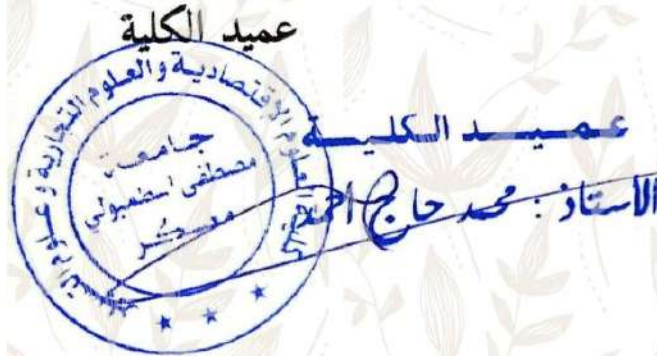 عميد الكلية
كلية العلوم الإقتصادية والعلوم التجارية وعلوم التسيير
جامعة
مصطفى اسطمبولي
معسكر
عميد الكلية
الأستاذ : محمد حاج احمد